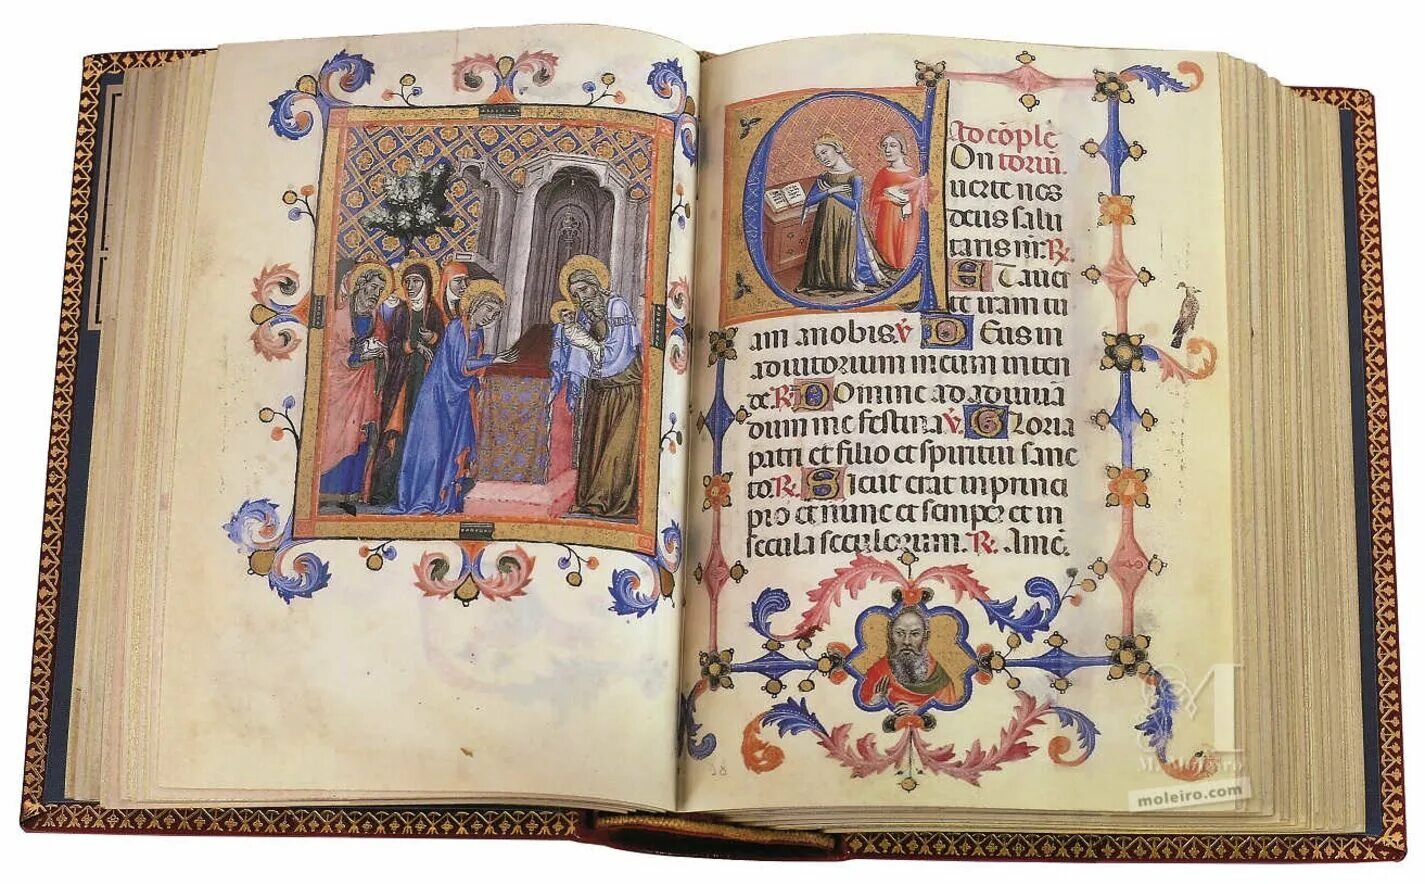 Ad cõple
On toriũ.
uerte nos
deus salu
taris nr̃. R.
Et auer
te iram tu
am a nobis. V Deus in
adiutorium meum inten
de. R. Domine ad adiuuã
dum me festina V. Gloria
patri et filio et spiritui sanc
to. R. Sicut erat in princi
pio et nunc et semper et in
secula seculorum. R. Amē.
M
M. Moleiro
moleiro.com